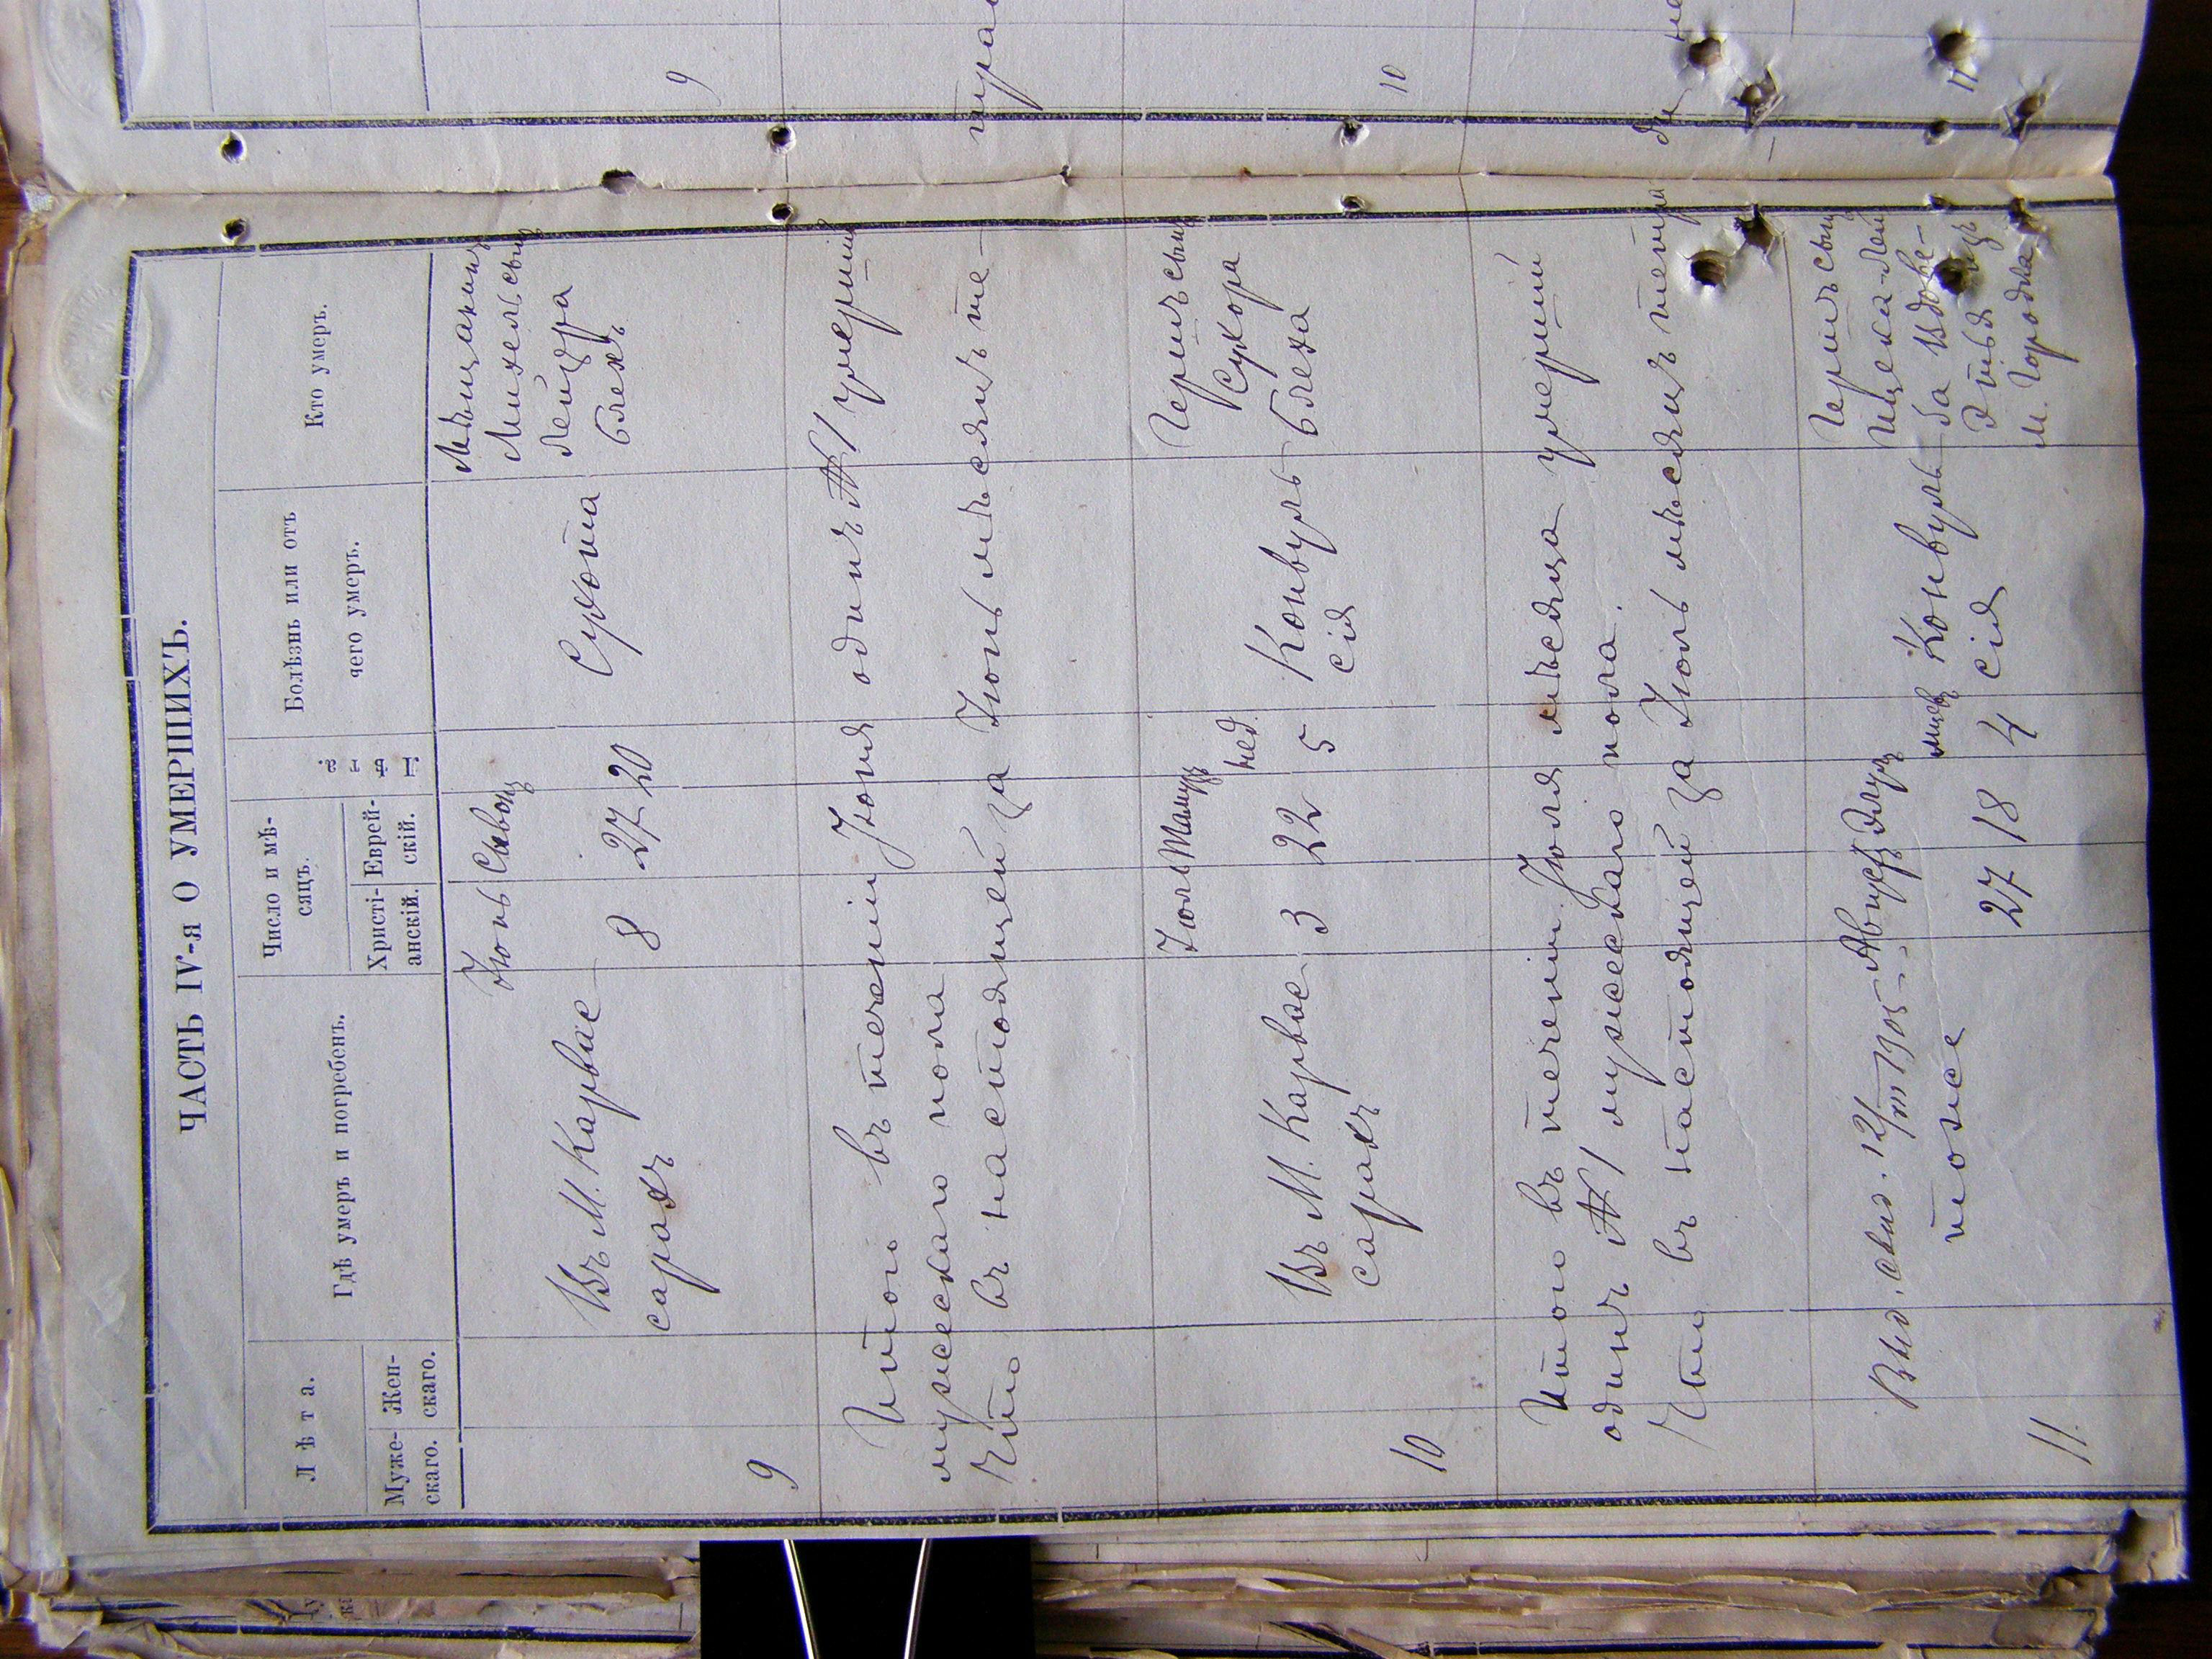 ЧАСТЬ IV-я О УМЕРШИХЪ.
Лѣта.
Муже-
скаго.
Жен-
скаго.
Гдѣ умеръ и погребенъ.
Число и мѣ-
сяцъ.
Христі-
анскій.
Еврей-
скій.
Болѣзнь или отъ
чего умеръ.
Кто умеръ.
9
Въ М. Карвас
сарахъ
Іюнь
8
27
20
Сухота
Мѣщанинъ
Михель сынъ
Лейзора
Блехъ
Итого въ теченіи Іюня одинъ № 1 умершій
мужескаго пола
Что въ настоящей за Іюнь мѣсяцъ те-
10
Въ М. Карвас
сарахъ
Іюль
3
Тамузъ
22
нед.
5
Конвуль
сія
Гершъ сынъ
Сухора
Блеха
Итого въ теченіи Іюля мѣсяца умершій
одинъ № 1 мужескаго пола.
Что въ настоящей за Іюль мѣсяцъ тетра
11.
Выд. свид. 12/III 1905
тоже
Августъ
27
18
4
Конвуль
сія
Гершъ сынъ
Ицека-Лей
ба Вдове-
м. Городка
9
10
11